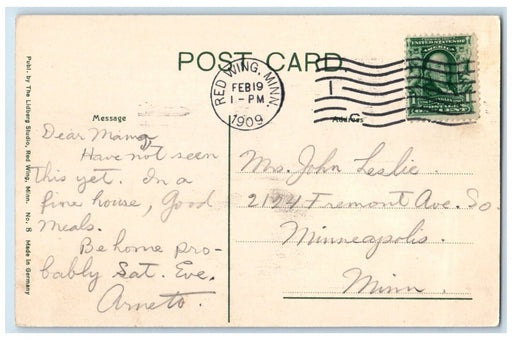 POST CARD
RED WING, MINN.
FEB 19
1 - PM
1909
UNITED STATES OF
AMERICA
Message
Address
Publ. by The Lidberg Studio, Red Wing, Minn. No. 8 Made in Germany
Dear Mama
Have not seen
this yet. In a
fine house, Good
meals.
Be home pro-
bably Sat. Eve.
Arneto.
Mrs. John Leslie.
2124 Fremont Ave. So.
Minneapolis.
Minn.